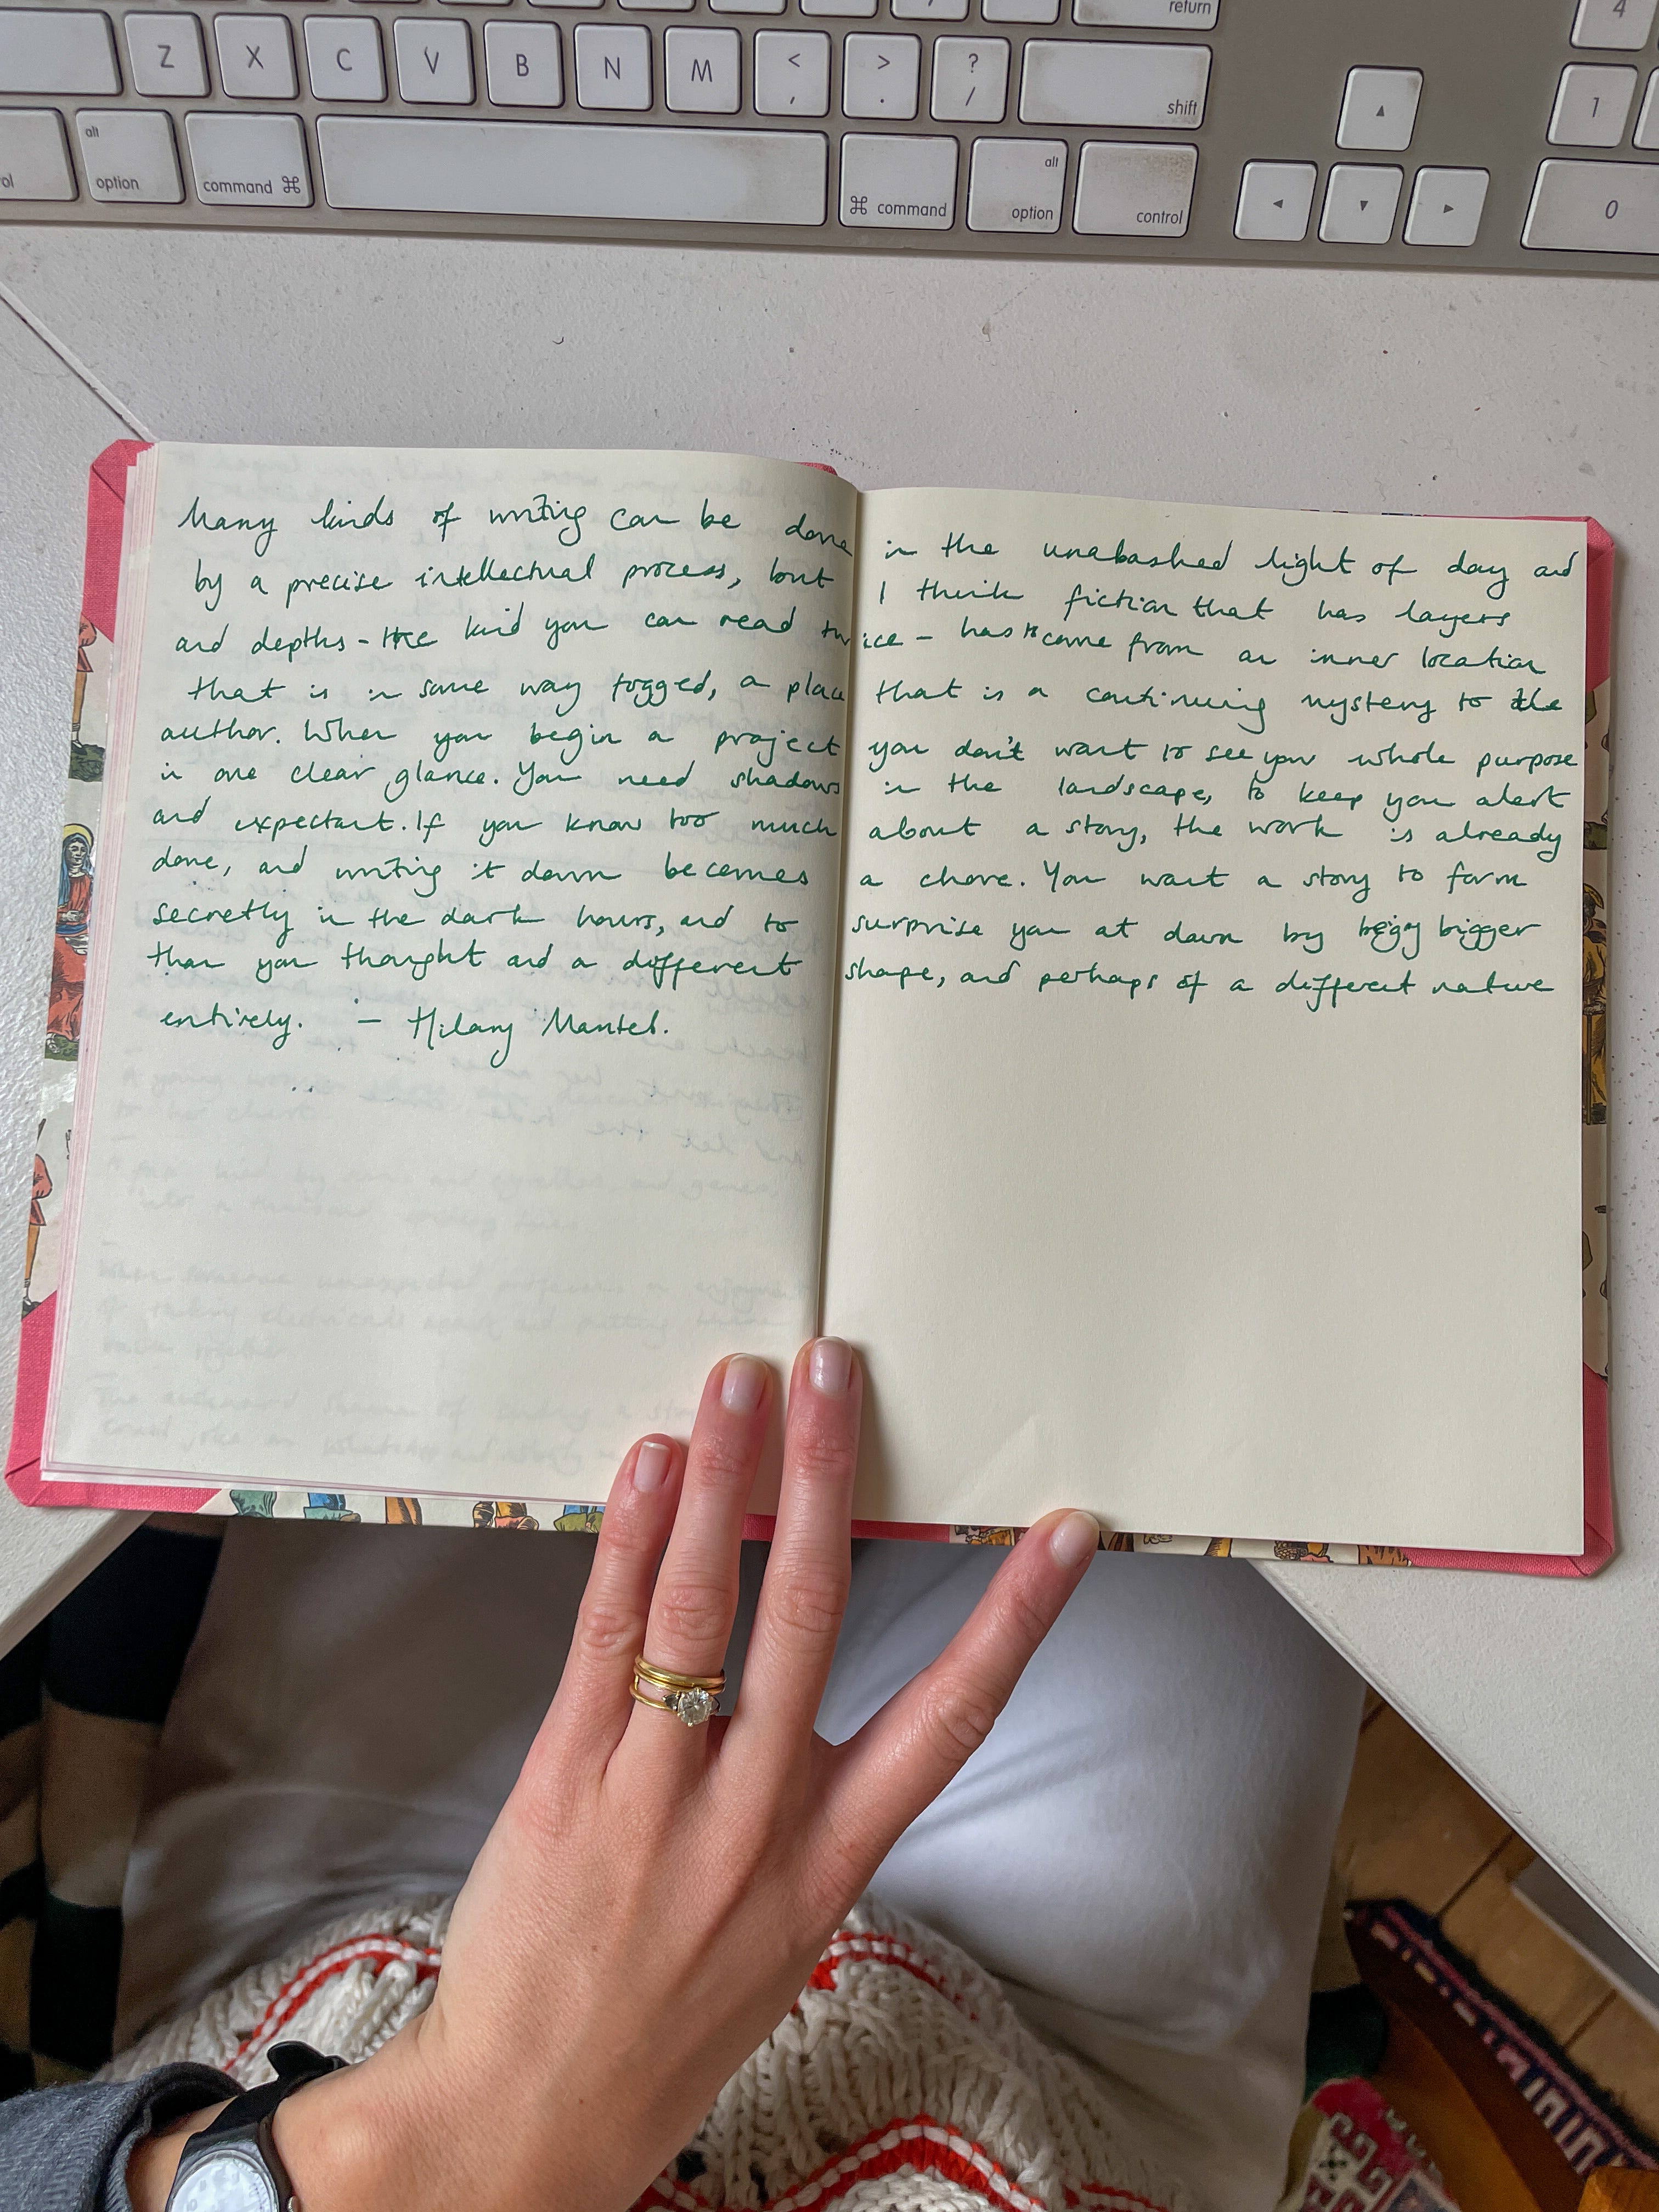 return
4
Z X C V B N M < , > . ? / shift
1
ol alt option command ⌘ ⌘ command alt option control
0
Many kinds of writing can be done in the unabashed light of day and
by a precise intellectual process, but I think fiction that has layers
and depths - the kind you can read twice - has to come from an inner location
that is in some way fogged, a place that is a continuing mystery to the
author. When you begin a project you don't want to see your whole purpose
in one clear glance. You need shadows in the landscape, to keep you alert
and expectant. If you know too much about a story, the work is already
done, and writing it down becomes a chore. You want a story to form
secretly in the dark hours, and to surprise you at dawn by bigger
than you thought and a different shape, and perhaps of a different nature
entirely. - Hilary Mantel.